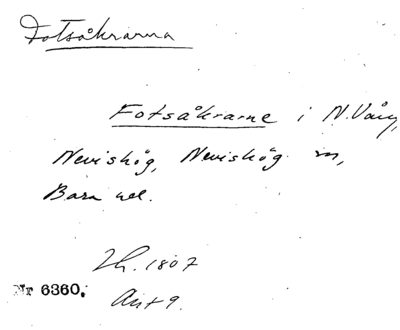 Fotsåkrarna
Fotsåkrarne i N. Vång,
Nevishög, Nevishög sn,
Bara hd.
Lh. 1807
Nr 6360.
Akt 9.